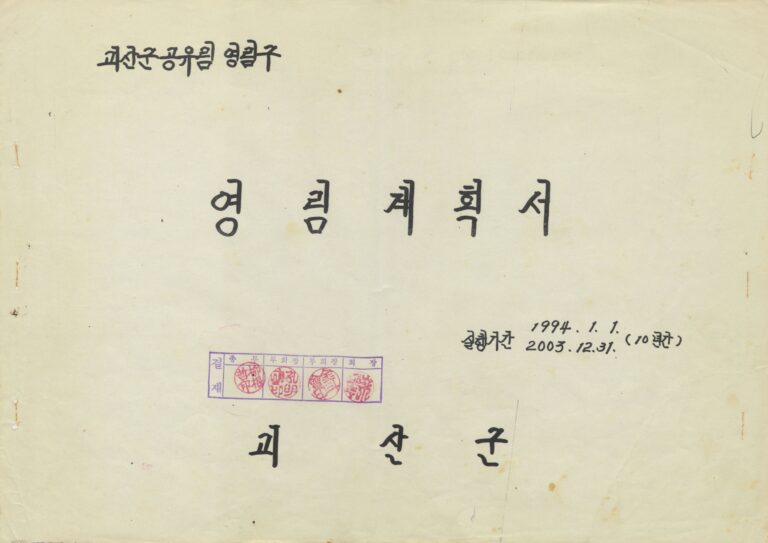 괴산군 공유림 영림구
영 림 계 획 서
실행기간 1994. 1. 1.
2003. 12. 31. (10년간)
결재 총무 부회장 부회장 회장
괴 산 군